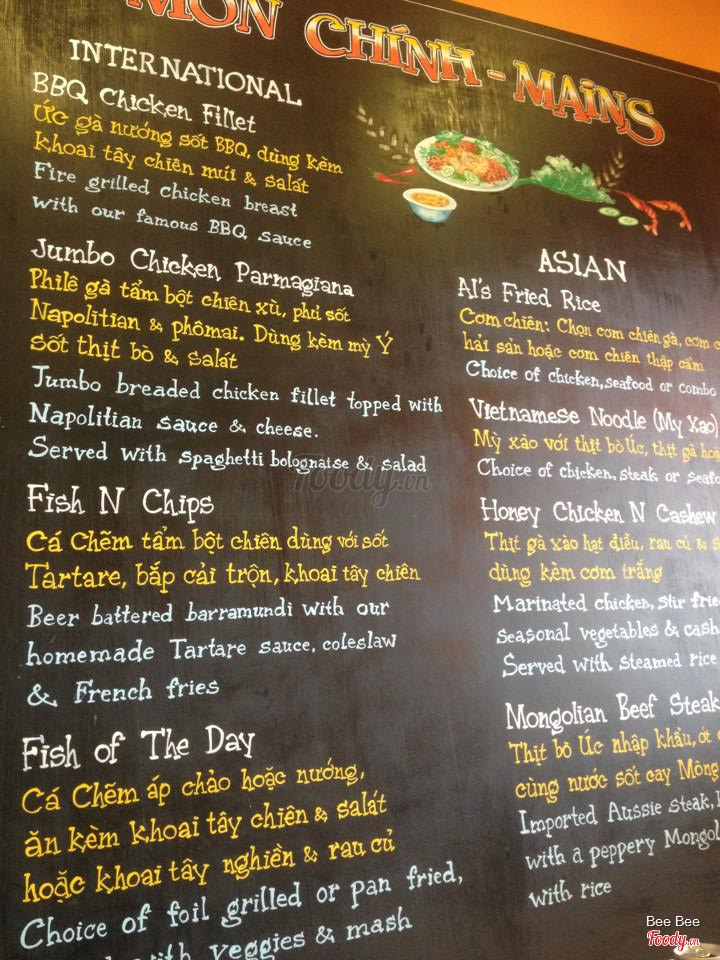 MÓN CHÍNH - MAINS
INTERNATIONAL
BBQ Chicken Fillet
Ức gà nướng sốt BBQ, dùng kèm
khoai tây chiên múi & salát
Fire grilled chicken breast
with our famous BBQ sauce
Jumbo Chicken Parmagiana
Philê gà tẩm bột chiên xù, phủ sốt
Napolitian & phômai. Dùng kèm mỳ Ý
sốt thịt bò & salát
Jumbo breaded chicken fillet topped with
Napolitian sauce & cheese.
Served with spaghetti bolognaise & salad
Fish N Chips
Cá Chẽm tẩm bột chiên dùng với sốt
Tartare, bắp cải trộn, khoai tây chiên
Beer battered barramundi with our
homemade Tartare sauce, coleslaw
& French fries
Fish of The Day
Cá Chẽm áp chảo hoặc nướng,
ăn kèm khoai tây chiên & salát
hoặc khoai tây nghiền & rau củ
Choice of foil grilled or pan fried,
with veggies & mash
ASIAN
Al's Fried Rice
Cơm chiên: Chọn cơm chiên gà, cơm
hải sản hoặc cơm chiên thập cẩm
Choice of chicken, seafood or combo
Vietnamese Noodle (My Xao)
Mỳ xào với thịt bò Úc, thịt gà
Choice of chicken, steak or
Honey Chicken N Cashew
Thịt gà xào hạt điều, rau củ &
dùng kèm cơm trắng
Marinated chicken, stir
Seasonal vegetables &
Served with steamed rice
Mongolian Beef Steak
Thịt bò Úc nhập khẩu, ớt
cùng nước sốt cay
Imported Aussie steak,
with a peppery
with rice
Foody.vn
Bee Bee
Foody.vn